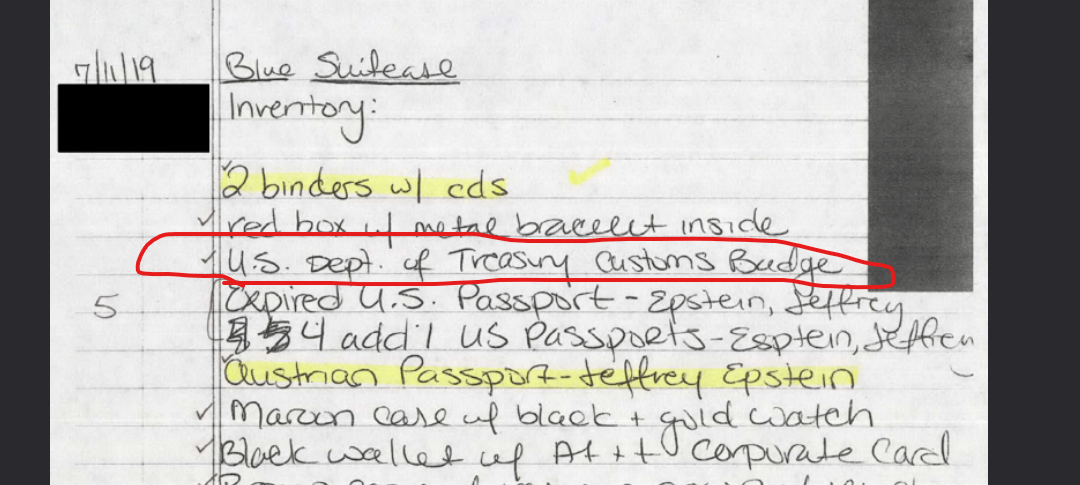 7/11/19 Blue Suitcase
Inventory:
2 binders w/ cds
red box w/ metal bracelet inside
U.S. Dept. of Treasury Customs Badge
5 Expired U.S. Passport - Epstein, Jeffrey
4 add'l US Passports - Esptein, Jeffrey
Austrian Passport - Jeffrey Epstein
Maroon case w/ black + gold watch
Black wallet w/ At+t Corporate Card